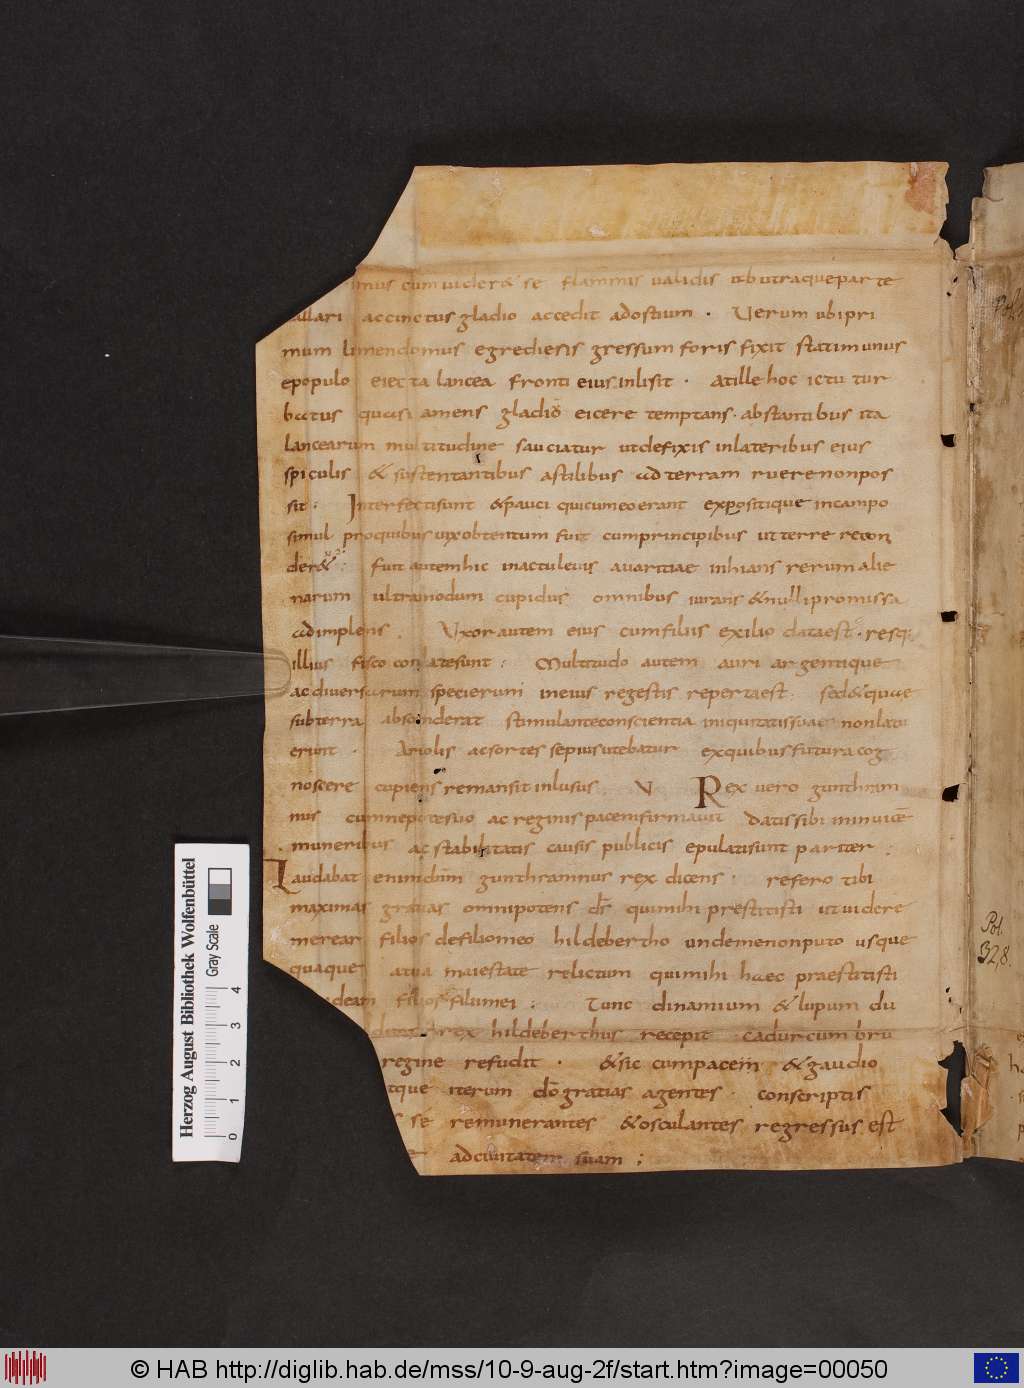 imus cum uider& se flammis validis ab utraque parte
uallari accinctus gladio accedit ad ostium . Verum ubi pri
mum limen domus egrediens gressum foris fixit statim unus
e populo eiecta lancea fronti eius inlisit . at ille hoc ictu tur
batus quasi amens gladiō eicere temptans . abstantibus ita
lancearum multitudine sauciatur ut defixis in lateribus eius
spiculis & sustentantibus astilibus ad terram ruere non pos
sit : Interfecti sunt & pauci qui cum eo erant expositique in campo
simul pro quibus vix obtentum fuit cum principibus ut terre recon
der& : fuit autem hic in actu levis avaritiae inhians rerum alie
narum ultra modum cupidus omnibus iurans & nulli promissa
adimplens . Uxor autem eius cum filiis exilio data est . resq;
illius fisco conlate sunt : Multitudo autem auri argentique
ac diversarum specierum in eius regestis reperta est . sed & quae
sub terra absconderat stimulante conscientia iniquitatis suae non latu
erunt . Ariolis ac sortes sepius utebatur ex quibus futura cog
noscere cupiens remansit inlusus . V Rex vero gunthram
nus cum nepote suo ac reginis pacem firmavit datis sibi in inuicē
muneribus ac stabilitatis causis publicis epulati sunt pariter :
Laudabat enim dnm gunthramnus rex dicens . refero tibi
maximas gratias omnipotens ds qui mihi prestitisti ut videre
merear filios de filio meo hildebertho unde me non puto usque
quaque a tua maiestate relictum qui mihi haec praestitisti
ut videam filios filii mei : Tunc dinamium & lupum du
rex hildeberthus recepit cadurcum bru
regine refudit . & sic cum pacem & gaudio
tque iterum do gratias agentes . conscriptis
s se remunerantes & osculantes regressus est
ad civitatem suam ;
Pol.
328.
Herzog August Bibliothek Wolfenbüttel
Gray Scale
0 1 2 3 4
© HAB http://diglib.hab.de/mss/10-9-aug-2f/start.htm?image=00050